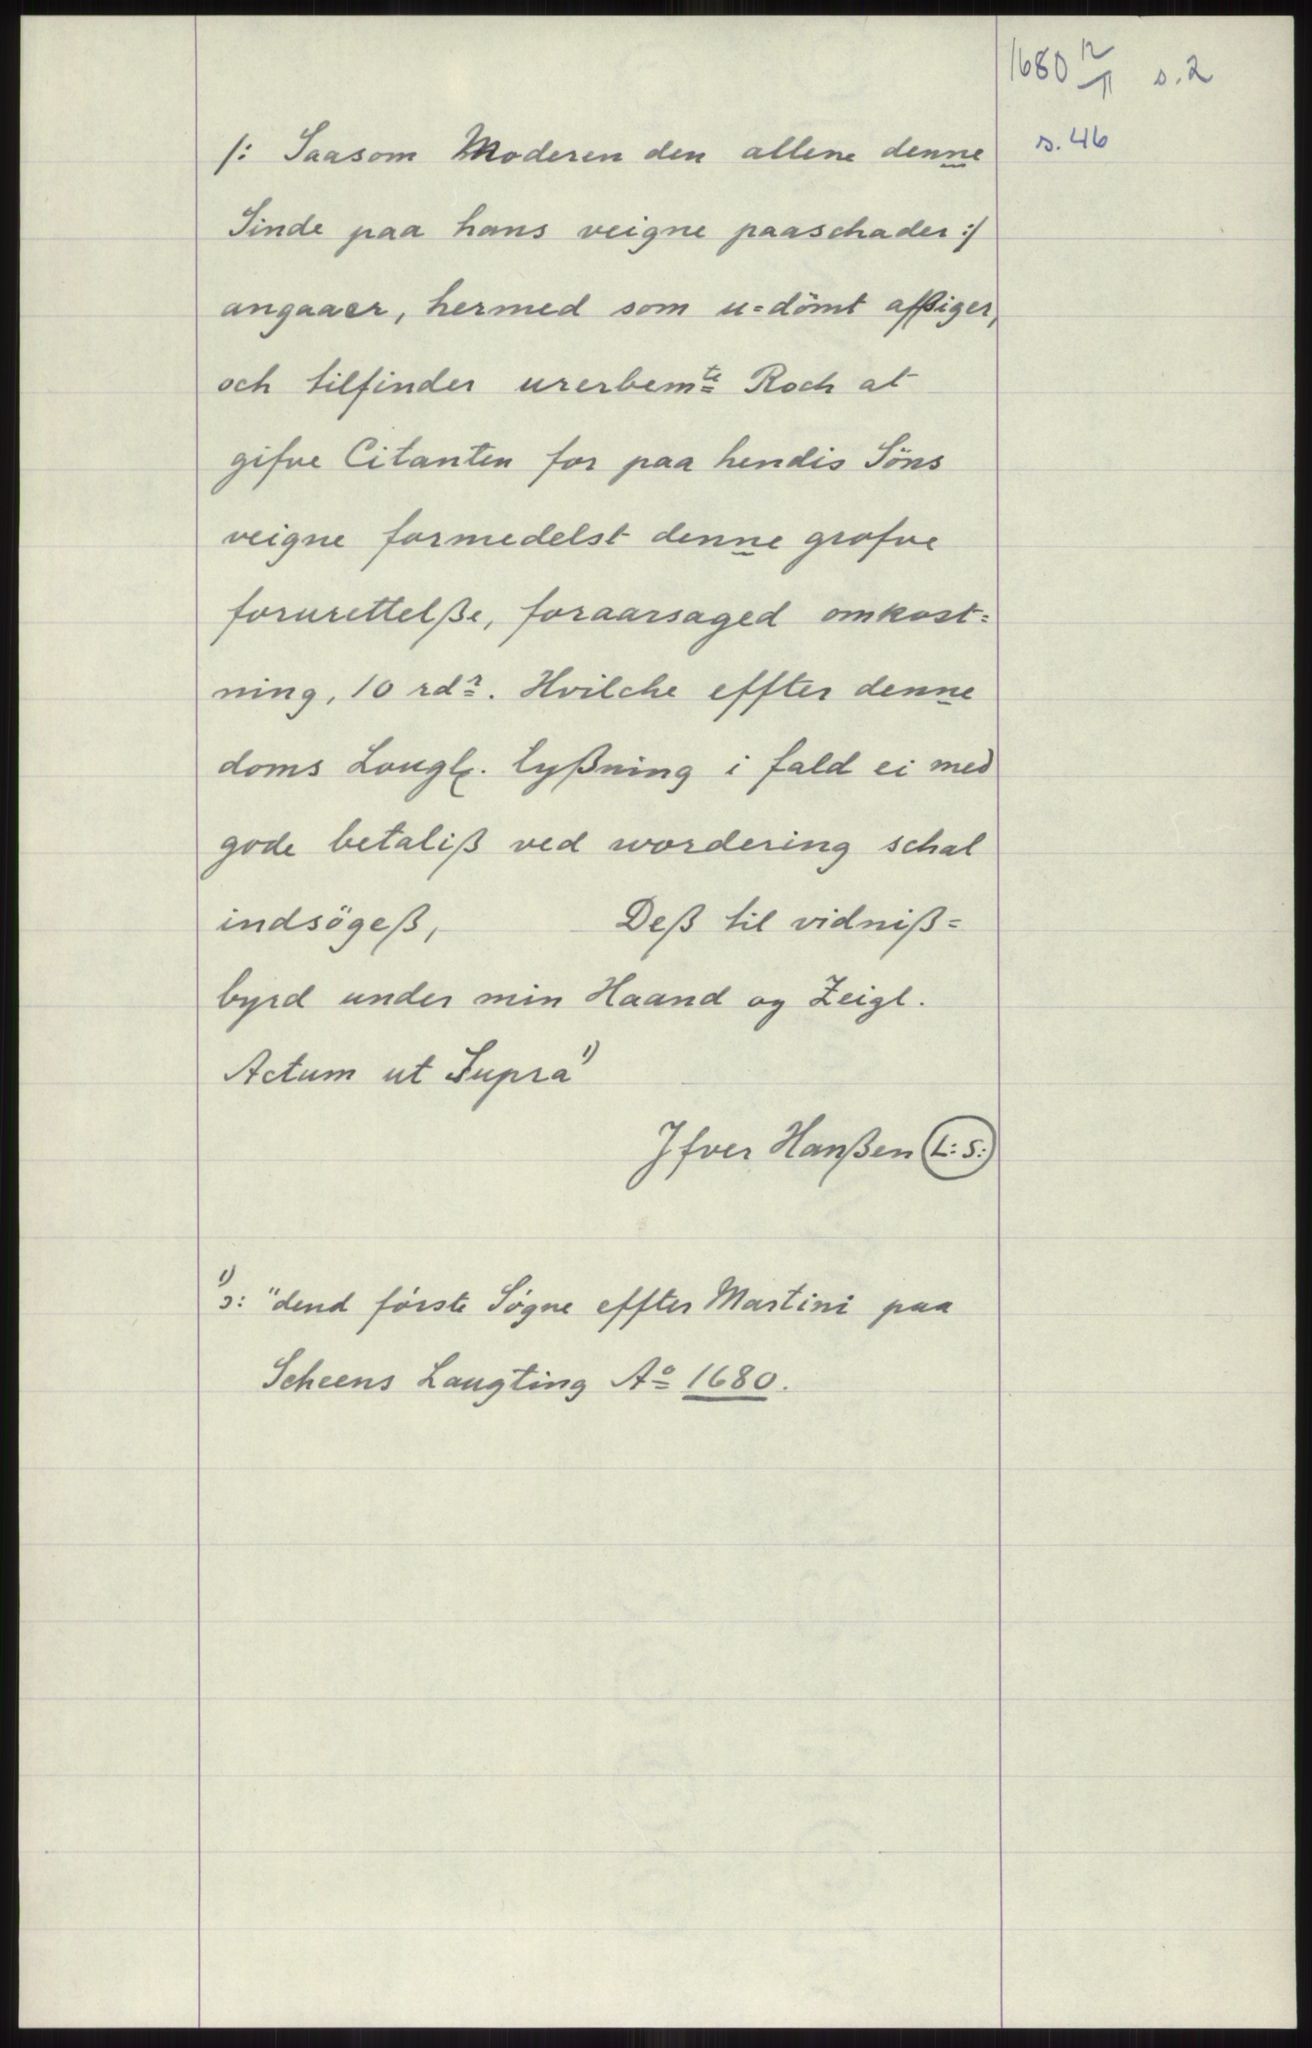 1680 12/11 s. 2
s. 46
/: Saasom Moderen den allene denne
Sinde paa hans veigne paaschader :/
angaaer, hermed som u=dömt afßiger,
och tilfinder urerbemte Roch at
gifve Citanten for paa hendis Söns
veigne formedelst denne grofve
forurettelße, foraarsaged omkost=
ning, 10 rdr. Hvilche effter denne
doms Lougl. lyßning i fald ei med
gode betaliß ved wordering schal
indsögeß, Deß til vidniß=
byrd under min Haand og Zeigl.
Actum ut Supra 1)
Jfver Hanßen L: S:
1) ɔ: "dend förste Sögne effter Martini paa
Scheens Laugting Ao 1680.